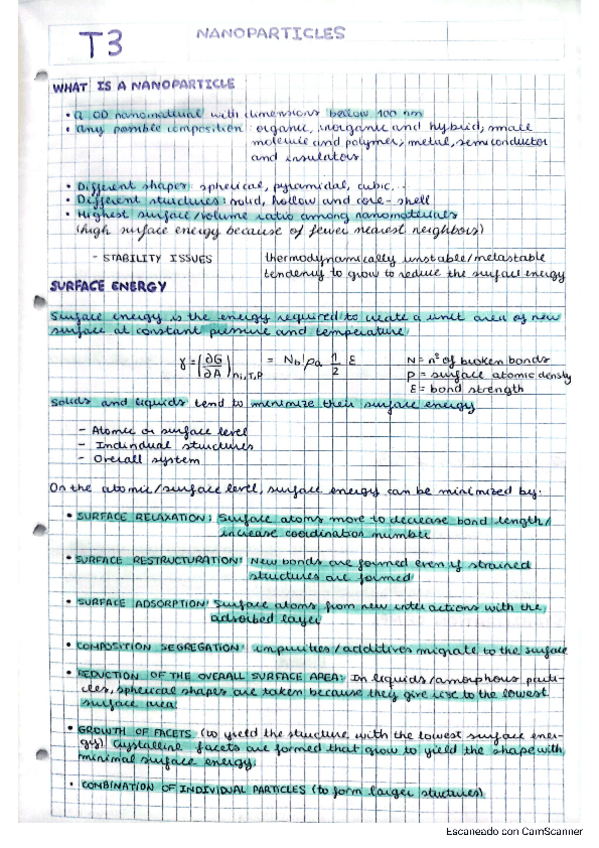 T3
NANOPARTICLES
WHAT IS A NANOPARTICLE
• a 0D nanomaterial with dimensions below 100 nm
• any possible composition: organic, inorganic and hybrid; small
molecule and polymer; metal, semiconductor
and insulators
• Different shapes: spherical, pyramidal, cubic...
• Different structures: solid, hollow and core-shell
• Highest surface/volume ratio among nanomaterials
(high surface energy because of fewer nearest neighbors)
- STABILITY ISSUES thermodynamically unstable/metastable
tendency to grow to reduce the surface energy
SURFACE ENERGY
Surface energy is the energy required to create a unit area of new
surface at constant pressure and temperature
γ = (∂G/∂A) ni,T,P = Nb ρa 1/2 ε N = nº of broken bonds
ρ = surface atomic density
ε = bond strength
Solids and liquids tend to minimize their surface energy
- Atomic or surface level
- Individual structures
- Overall system
On the atomic/surface level, surface energy can be minimized by:
• SURFACE RELAXATION: Surface atoms move to decrease bond length/
increase coordination number
• SURFACE RESTRUCTURATION: New bonds are formed even if strained
structures are formed
• SURFACE ADSORPTION: Surface atoms from new interactions with the
adsorbed layer
• COMPOSITION SEGREGATION: impurities/additives migrate to the surface
• REDUCTION OF THE OVERALL SURFACE AREA: In liquids/amorphous parti-
cles, spherical shapes are taken because they give rise to the lowest
surface area
• GROWTH OF FACETS (to yield the structure with the lowest surface ener-
gy) Crystalline facets are formed that grow to yield the shape with
minimal surface energy
• COMBINATION OF INDIVIDUAL PARTICLES (to form larger structures)
Escaneado con CamScanner